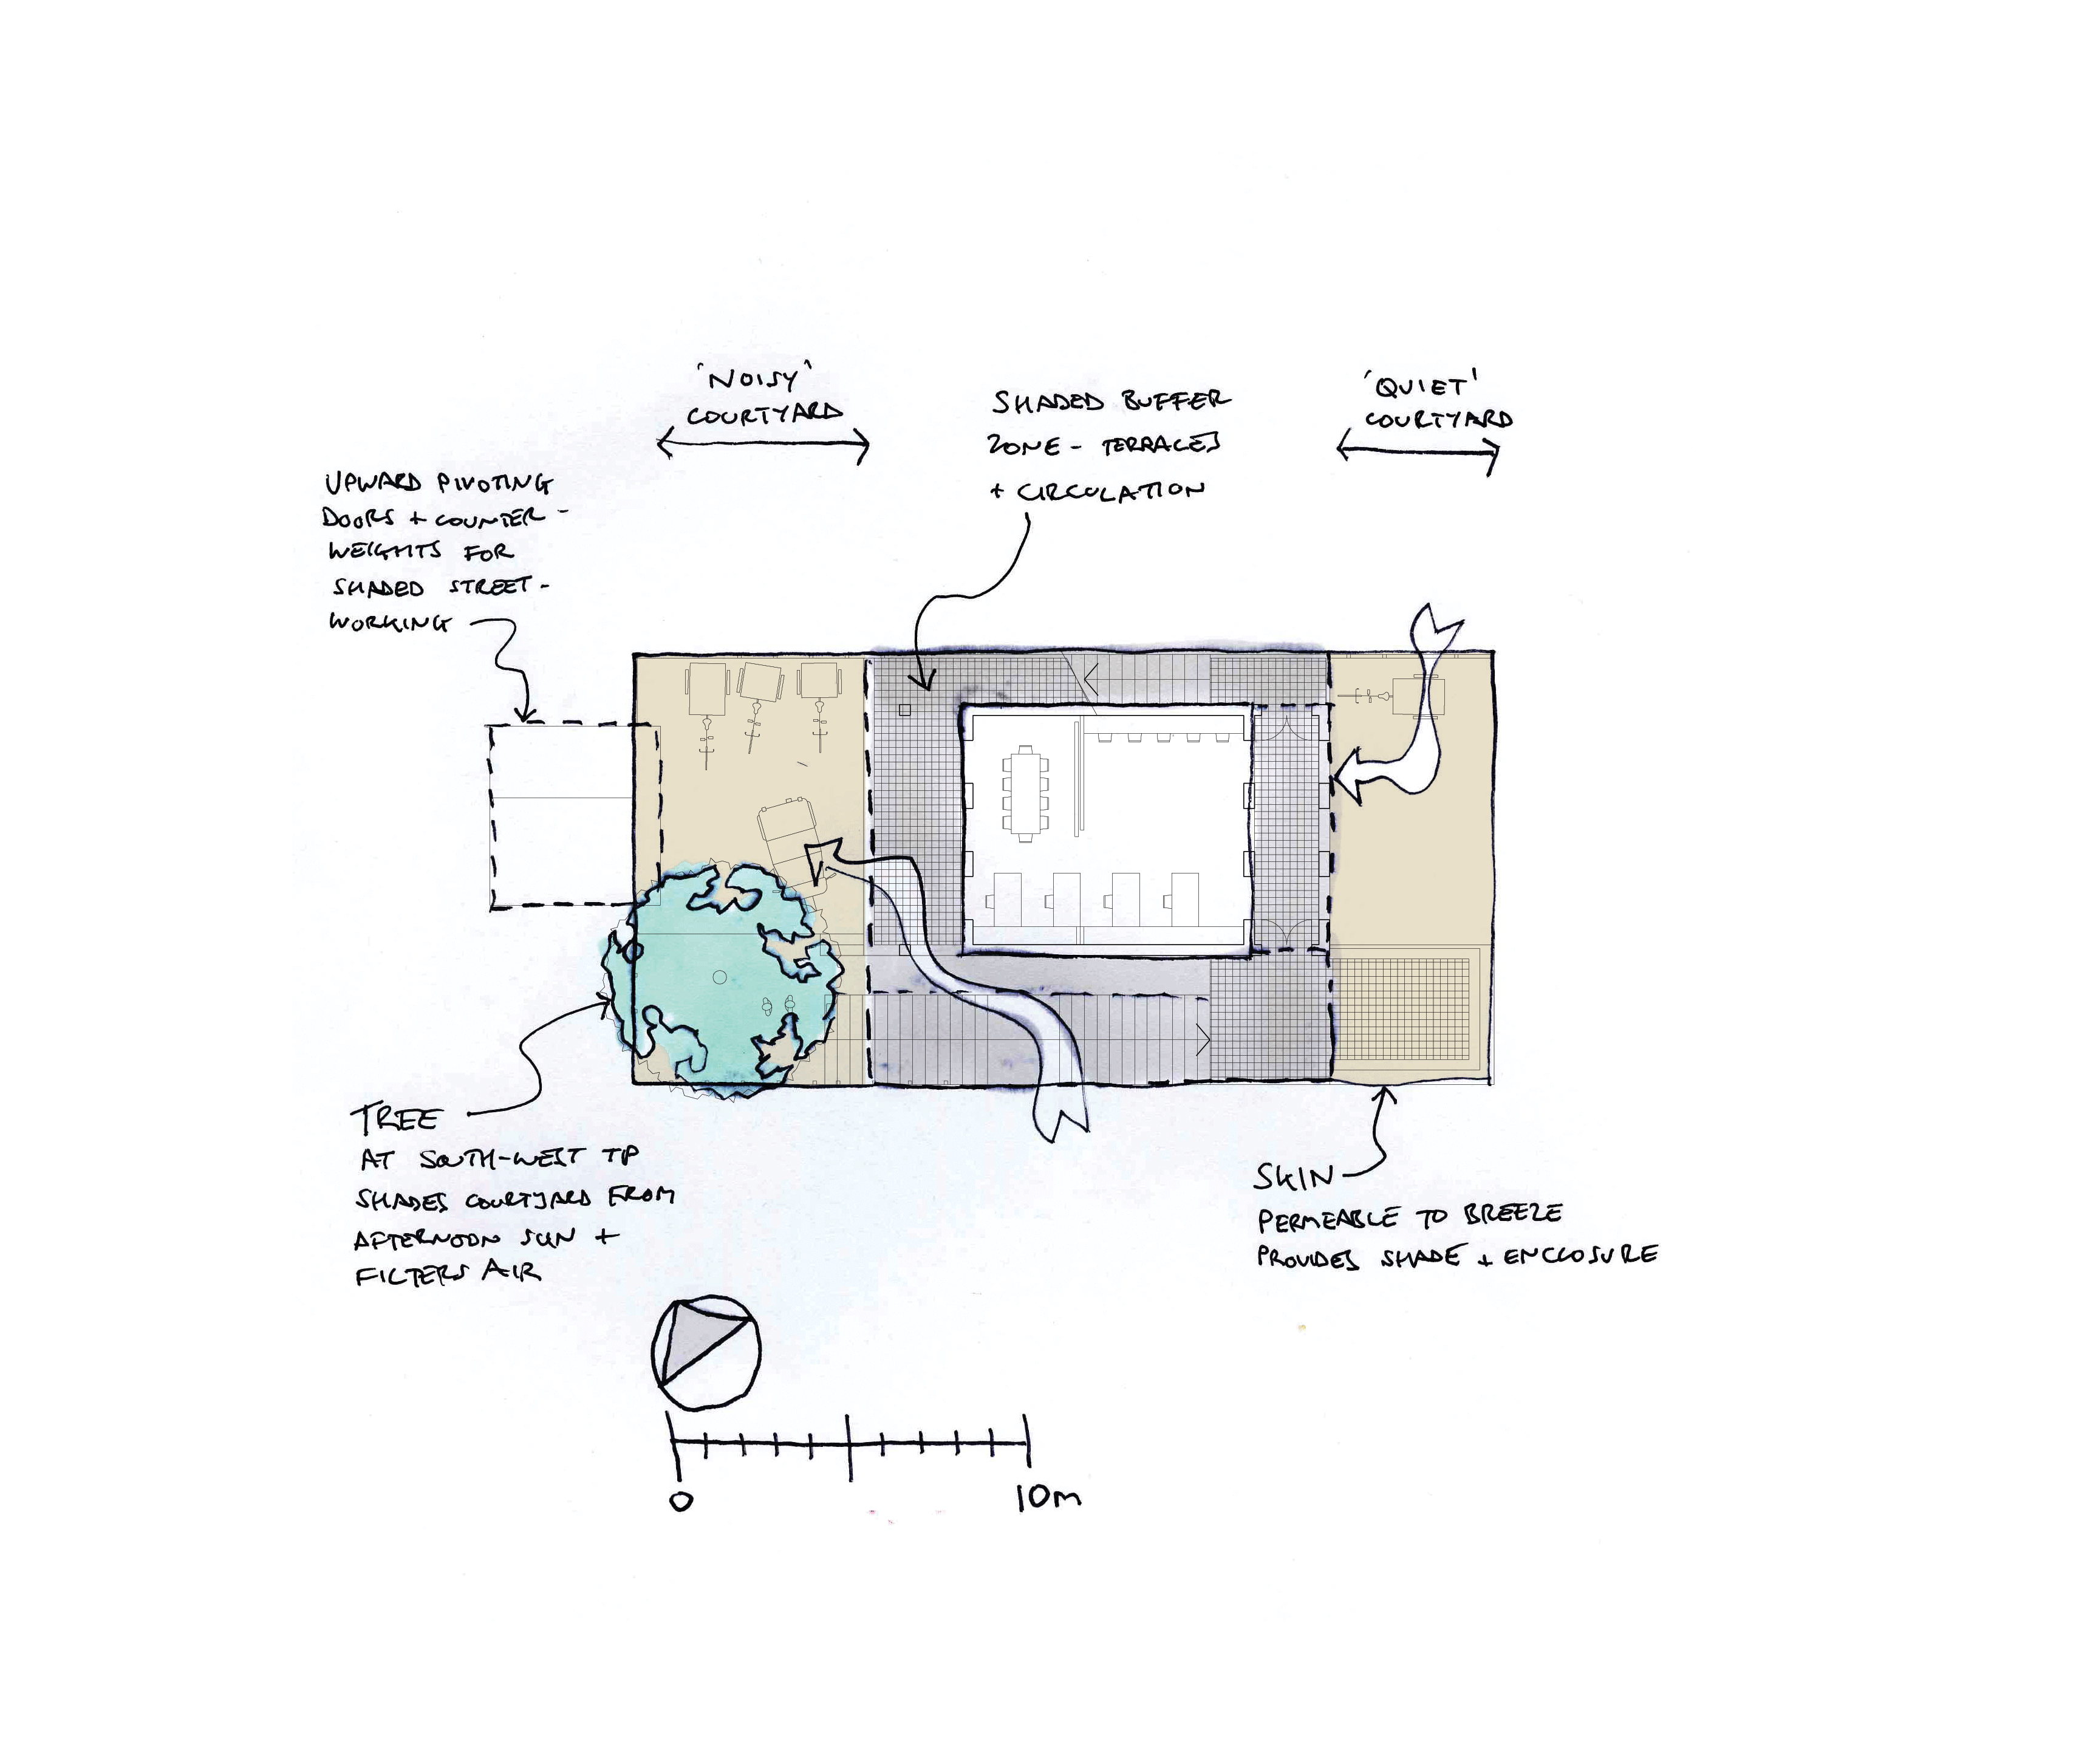 'NOISY'
COURTYARD
SHADED BUFFER
ZONE - TERRACES
+ CIRCULATION
'QUIET'
COURTYARD
UPWARD PIVOTING
DOORS + COUNTER-
WEIGHTS FOR
SHADED STREET-
WORKING
TREE
AT SOUTH-WEST TIP
SHADES COURTYARD FROM
AFTERNOON SUN +
FILTERS AIR
SKIN
PERMEABLE TO BREEZE
PROVIDES SHADE + ENCLOSURE
0 10m